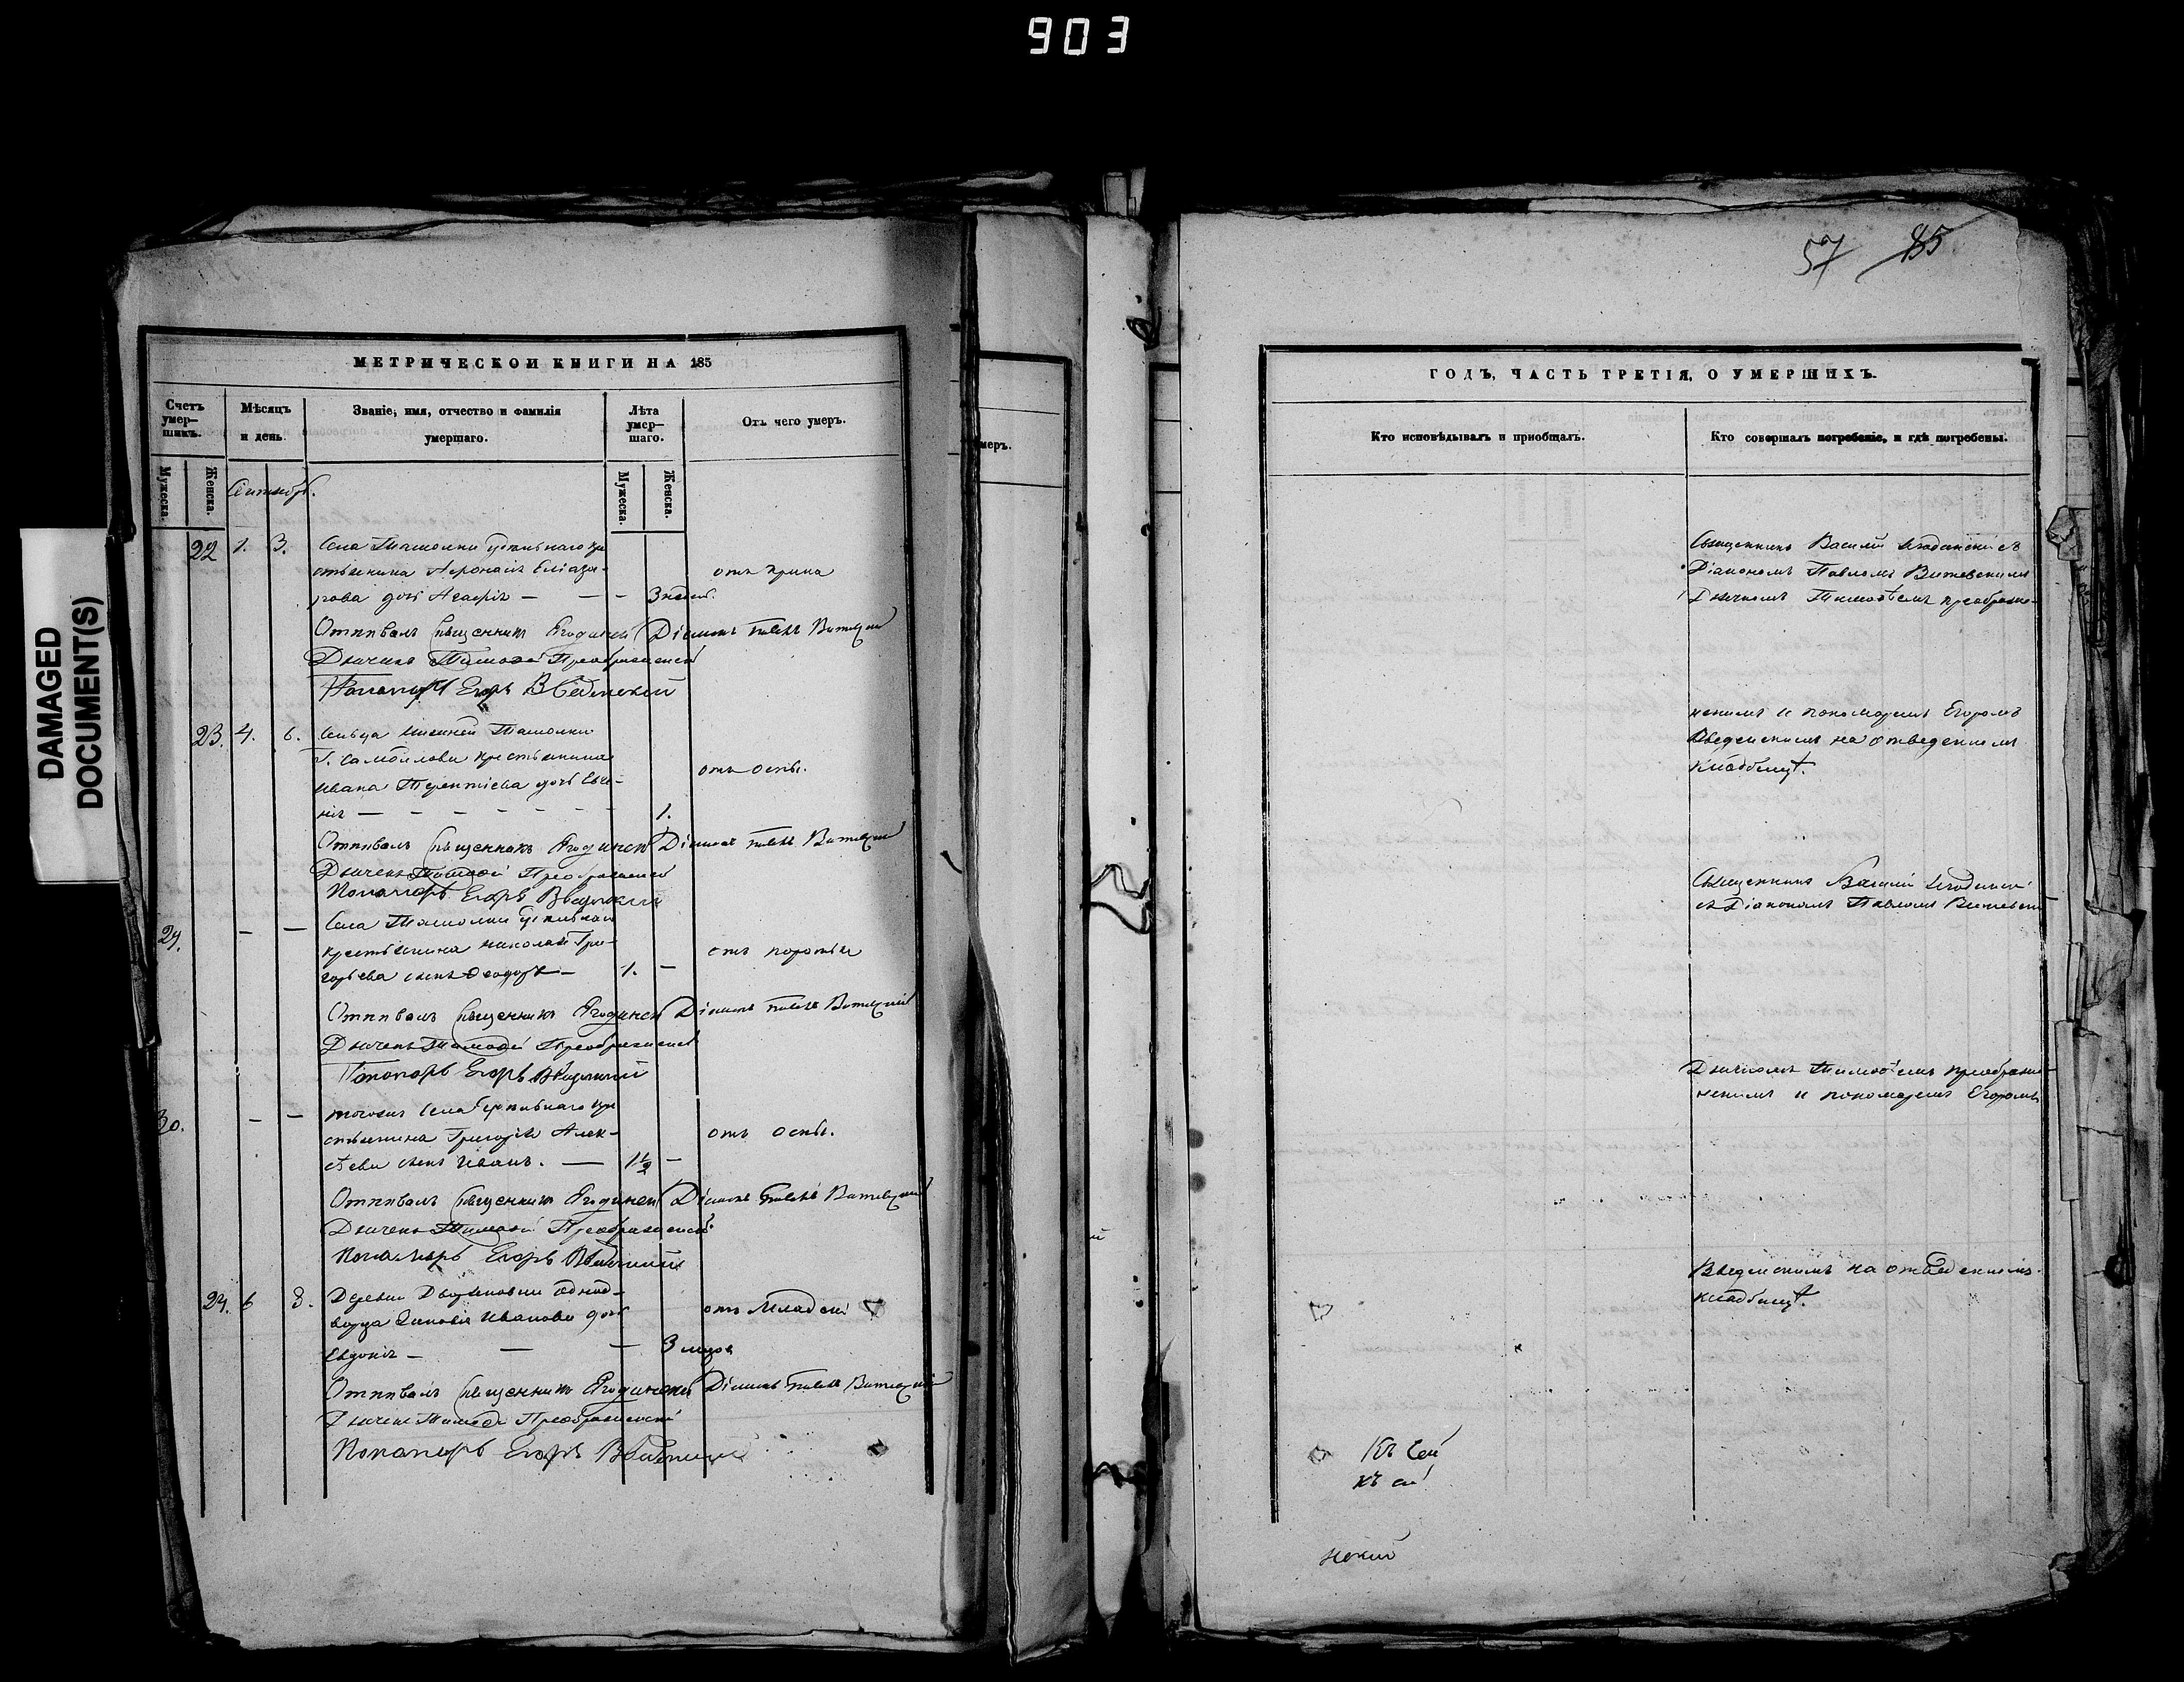 903
DAMAGED
DOCUMENT(S)
МЕТРИЧЕСКОЙ КНИГИ НА 185
Счетъ умер-шихъ.
Мѣсяцъ и день.
Званіе, имя, отчество и фамилія умершаго.
Лѣта умер-шаго.
Отъ чего умеръ.
Мужеска.
Женска.
Мужеска.
Женска.
22 1. 3. Села Ташолки удѣльнаго кре
стьянина Аѳонасія Еліаза-
рова дочь Агафія — — — 3 недел.
отъ крика
Отпѣвалъ Священникъ Ягодинскій Діаконъ Павелъ Витевскій
Дьячекъ Тимоѳей Преображенскій
Пономарь Егоръ Введенскій
23. 4. 6. Сельца Ташолки
Г. Самойлова крестьянина
Ивана Терентіева дочь Евге-
нія — — — — — — 1.
отъ оспы.
Отпѣвалъ Священникъ Ягодинскій Діаконъ Павелъ Витевскій
Дьячекъ Тимоѳей Преображенскій
Пономарь Егоръ Введенскій
29. — — Села Ташолки удѣльнаго
крестьянина Николая Гри-
горьева сынъ Ѳеодоръ — 1. —
отъ
Отпѣвалъ Священникъ Ягодинскій Діаконъ Павелъ Витевскій
Дьячекъ Тимоѳей Преображенскій
Пономарь Егоръ Введенскій
30. — — тогоже Села удѣльнаго кре
стьянина Григорія Алек-
сѣева сынъ Иванъ. — 1 1/2 —
отъ оспы.
Отпѣвалъ Священникъ Ягодинскій Діаконъ Павелъ Витевскій
Дьячекъ Тимоѳей Преображенскій
Пономарь Егоръ Введенскій
24. 6 8. Деревни однод-
ворца Зиновія Иванова дочь
Евдокія — — — 3 месяц.
отъ
Отпѣвалъ Священникъ Ягодинскій Діаконъ Павелъ Витевскій
Дьячекъ Тимоѳей Преображенскій
Пономарь Егоръ Введенскій
меръ.
57 85
ГОДЪ, ЧАСТЬ ТРЕТІЯ, О УМЕРШИХЪ.
Кто исповѣдывалъ и пріобщалъ.
Кто совершалъ погребеніе, и гдѣ погребены.
Священникъ Василій Ягодинскій съ
Діакономъ Павломъ Витевскимъ
Дьячкомъ Тимоѳеемъ преображе-
нскимъ и пономаремъ Егоромъ
Введенскимъ на отведенномъ
кладбищѣ.
Священникъ Василій Ягодинскій
съ Діакономъ Павломъ Витевски
Дьячкомъ Тимоѳеемъ преображе-
нскимъ и пономаремъ Егоромъ
Введенскимъ на отведенномъ
кладбищѣ.
Къ сей
къ сей
нский